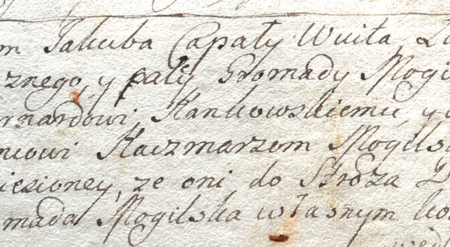 m Jakuba Capały Wuita
cznego, y całey Gromady Mogil
ernardowi Stankowskiemu y
niowi Kaczmarzom Mogilsk
iesioney, ze oni do Stroza
omada Mogilska własnym